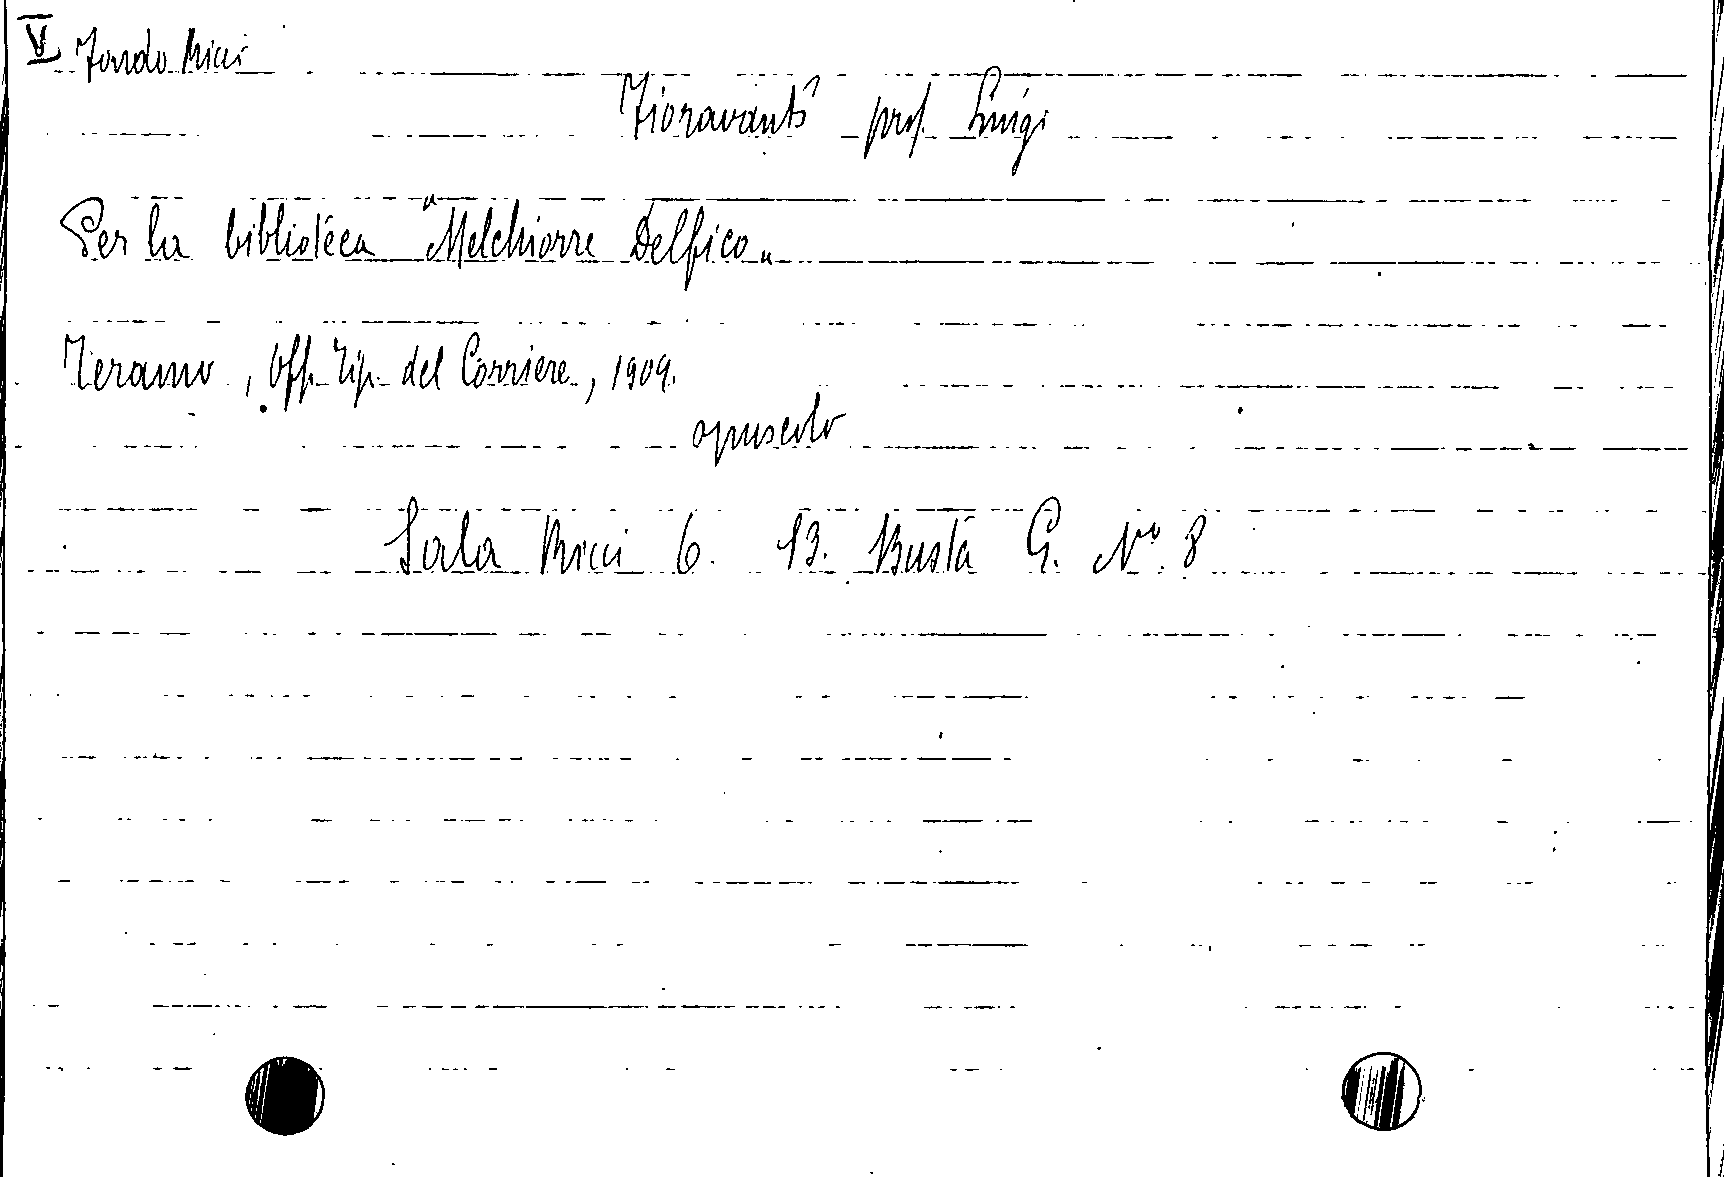 V Fondo Ricci
Fioravanti prof. Luigi
Per la biblioteca "Melchiorre Delfico„
Teramo, Off. Tip. del Corriere, 1909.
opuscolo
Sala Ricci 6. 13. Busta G. N° 8